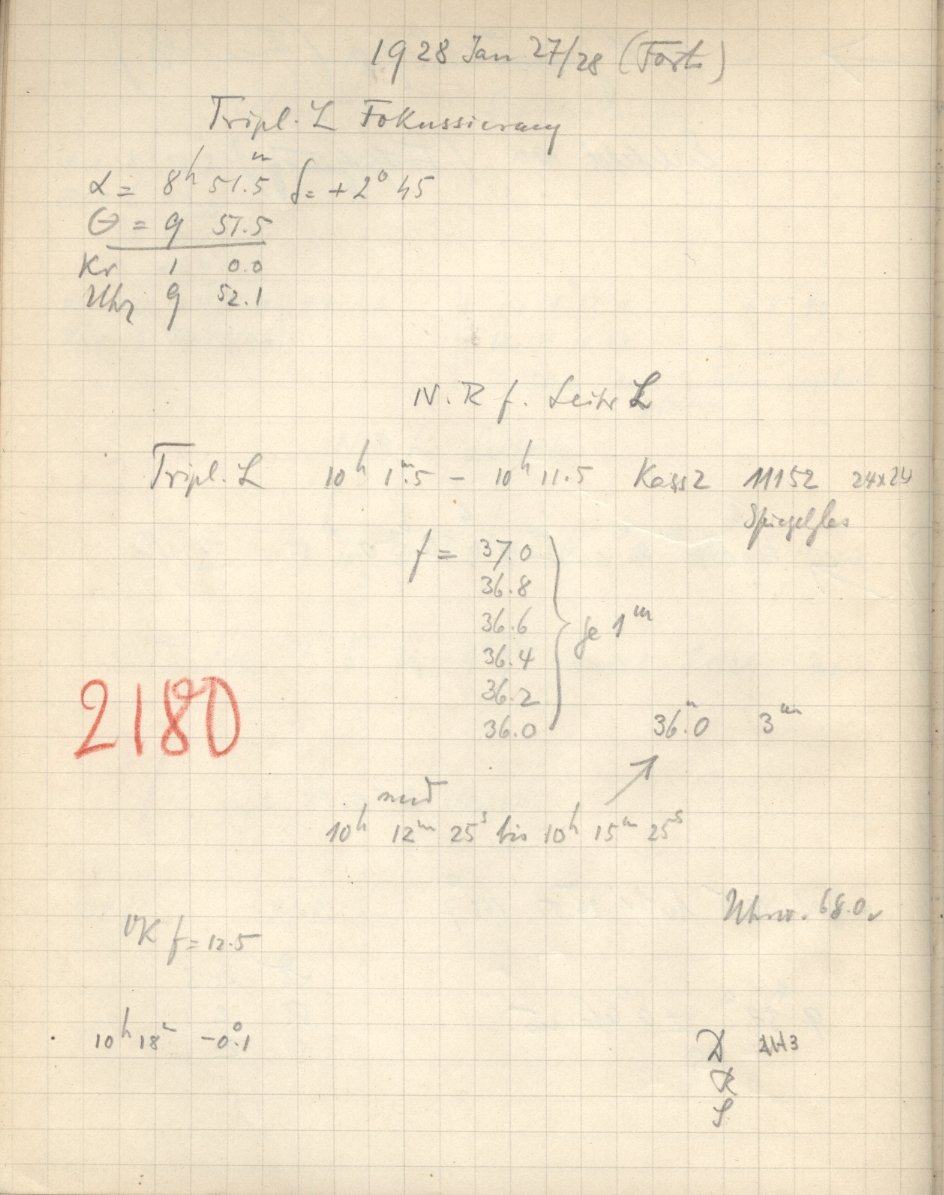 1928 Jan 27/28 (Forts)
Tripl. L Fokussierung
α = 8h 51.5m δ = +2° 45
Θ = 9 51.5
Kr 1 0.0
Uhr 9 52.1
N. R f. Leitr L
Tripl. L 10h 1m.5 – 10h 11.5 Kass 2 11152 24x24
Spiegelglas
f = 37.0
36.8
36.6
36.4
36.2
36.0
je 1m
2180
36.0 3m
und
10h 12m 25s bis 10h 15m 25s
Uhrw. 68.0
VK f = 12.5
10h 18m -0°.1
D
R
S